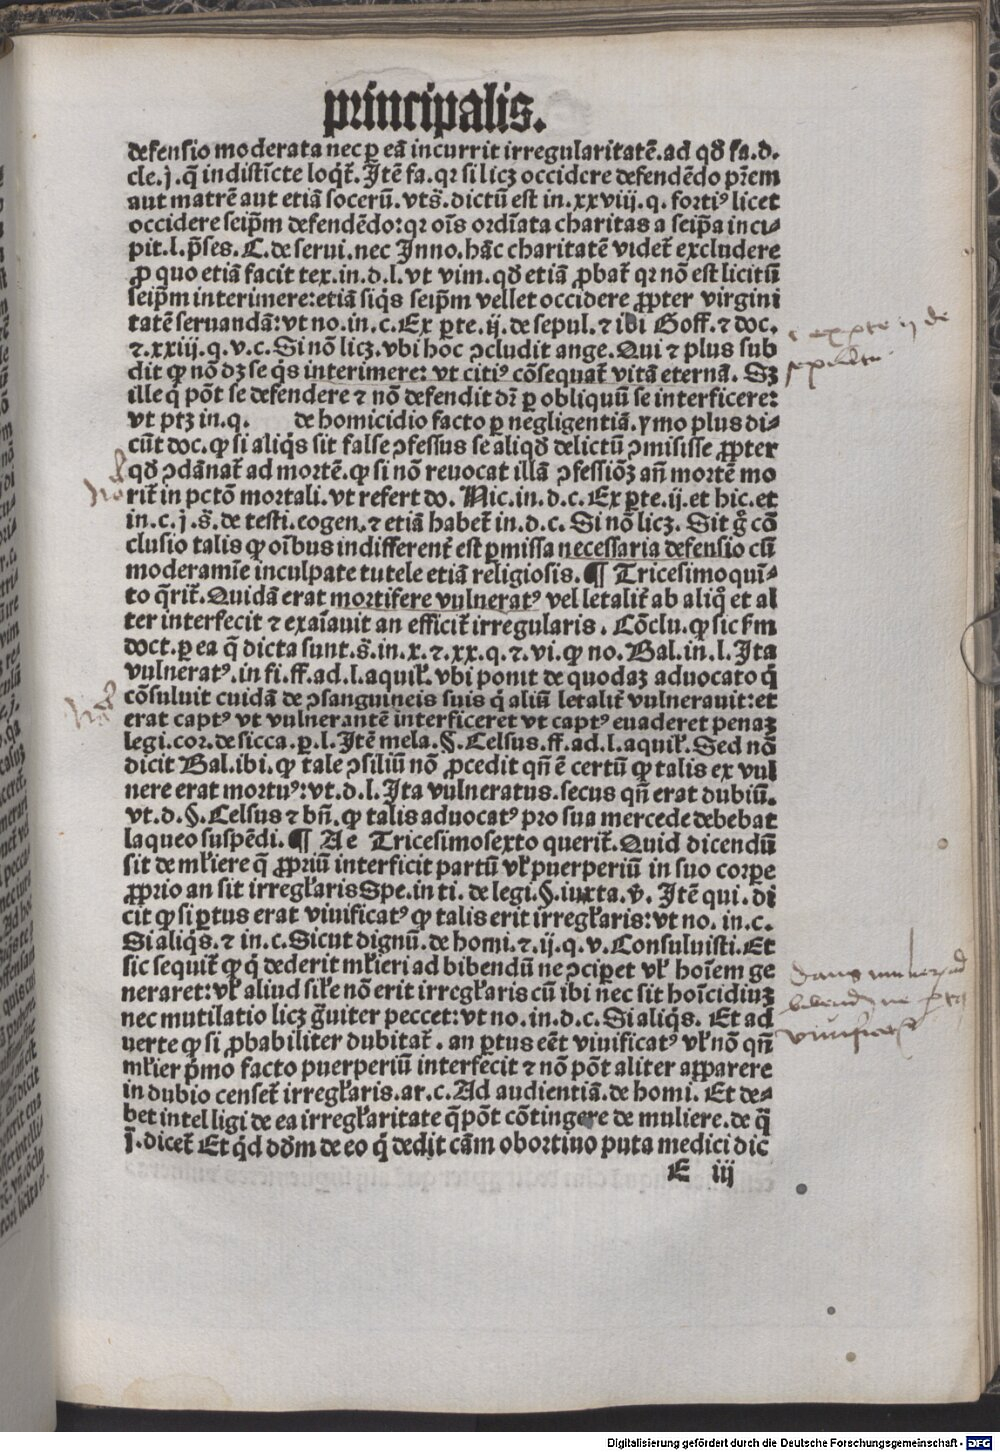 principalis.
defensio moderata nec ꝑ eã incurrit irregularitatẽ. ad qđ fa. d.
cle. j. q̃ indistĩcte loq̃t̃. Itẽ fa. qꝛ si licꝫ occidere defendẽdo pr̃em
aut matrẽ aut etiã socerũ. vts̃. dictũ est in. xxviij. q. fortiꝰ licet
occidere seip̃m defendẽdo: qꝛ oĩs ordĩata charitas a seip̃a inci-
pit. l. p̃ses. C. de serui. nec Inno. hãc charitatẽ videt̃ excludere
ꝓ quo etiã facit tex. in. d. l. vt vim. qđ etiã ꝓbat̃ qꝛ nõ est licitũ
seip̃m interimere: etiã siq̃s seip̃m vellet occidere ꝓpter virgini
tatẽ seruandã: vt no. in. c. Ex ꝑte. ij. de sepul. ⁊ ibi Goff. ⁊ doc.
⁊. xxiij. q. v. c. Si nõ licꝫ. vbi hoc ↄcludit ange. Qui ⁊ plus sub
dit ꝙ nõ dꝫ se q̃s interimere: vt citiꝰ cõsequat̃ vitã eternã. Sꝫ
ille q̃ põt se defendere ⁊ nõ defendit dr̃ ꝑ obliquũ se interficere:
vt ptꝫ in. q. de homicidio facto ꝑ negligentiã. ꝛ mo plus di-
cũt doc. ꝙ si aliq̃s sit false ↄfessus se aliqđ delictũ ↄmisisse ꝓpter
qđ ↄdãnat̃ ad mortẽ. ꝙ si nõ reuocat illã ↄfessiõꝫ añ mortẽ mo
rit̃ in pctõ mortali. vt refert do. Nic. in. d. c. Ex ꝑte. ij. et hic. et
in. c. j. s̃. de testi. cogen. ⁊ etiã habet̃ in. d. c. Si nõ licꝫ. Sit g̃ cõ
clusio talis ꝙ oĩbus indifferent̃ est ꝑmissa necessaria defensio cũ
moderamĩe inculpate tutele etiã religiosis. ¶ Tricesimoquĩ-
to q̃rit̃. Quidã erat mortifere vulneratꝰ vel letalit̃ ab aliq̃ et al
ter interfecit ⁊ exaĩauit an efficit̃ irregularis. Cõclu. ꝙ sic ẜm
doct. ꝑ ea q̃ dicta sunt. s̃. in. x. ⁊. xx. q. ⁊. vi. ꝙ no. Bal. in. l. Ita
vulneratꝰ. in fi. ff. ad. l. aquiɫ. vbi ponit de quodaꝫ aduocato q̃
cõsuluit cuidã de ↄsanguineis suis q̃ aliũ letalit̃ vulnerauit: et
erat captꝰ vt vulnerantẽ interficeret vt captꝰ euaderet penaꝫ
legi. cor. de sicca. ꝑ. l. Itẽ mela. §. Celsus. ff. ad. l. aquiɫ. Sed nõ
dicit Bal. ibi. ꝙ tale ↄsiliũ nõ ꝓcedit qñ ẽ certũ ꝙ talis ex vul
nere erat mortuꝰ: vt. d. l. Ita vulneratus. secus qñ erat dubiũ.
vt. d. §. Celsus ⁊ bñ. ꝙ talis aduocatꝰ pro sua mercede debebat
laqueo suspẽdi. ¶ Ae Tricesimosexto querit̃. Quid dicendũ
sit de mɫiere q̃ ꝓpriũ interficit partũ vɫ puerperiũ in suo corpe
ꝓprio an sit irregɫaris Spe. in ti. de legi. §. iuxta. v̾. Itẽ qui. di
cit ꝙ si ꝑtus erat viuificatꝰ ꝙ talis erit irregɫaris: vt no. in. c.
Si aliq̃s. ⁊ in. c. Sicut dignũ. de homi. ⁊. ij. q. v. Consuluisti. Et
sic sequit̃ ꝙ q̃ dederit mɫieri ad bibendũ ne ↄciꝑet vɫ hoĩem ge
neraret: vɫ aliud siɫe nõ erit irregɫaris cũ ibi nec sit hoĩcidiuꝫ
nec mutilatio licꝫ g̃uiter peccet: vt no. in. d. c. Si aliq̃s. Et ad
uerte ꝙ si ꝓbabiliter dubitat̃. an ꝑtus eẽt viuificatꝰ vɫ nõ qñ
mɫier p̃mo facto puerperiũ interfecit ⁊ nõ põt aliter apparere
in dubio censet̃ irregɫaris. ar. c. Ad audientiã. de homi. Et de-
bet intelligi de ea irregɫaritate q̃ põt cõtingere de muliere. de q̃
j̃. dicet̃ Et q̃d dđm de eo q̃ dedit cãm obortiuo puta medici dic
E iij
c ex pte ij de
sepultu
No
No
dans mulieri ad
bibendũ ne ptꝰ
viuificetr
Digitalisierung gefördert durch die Deutsche Forschungsgemeinschaft - DFG